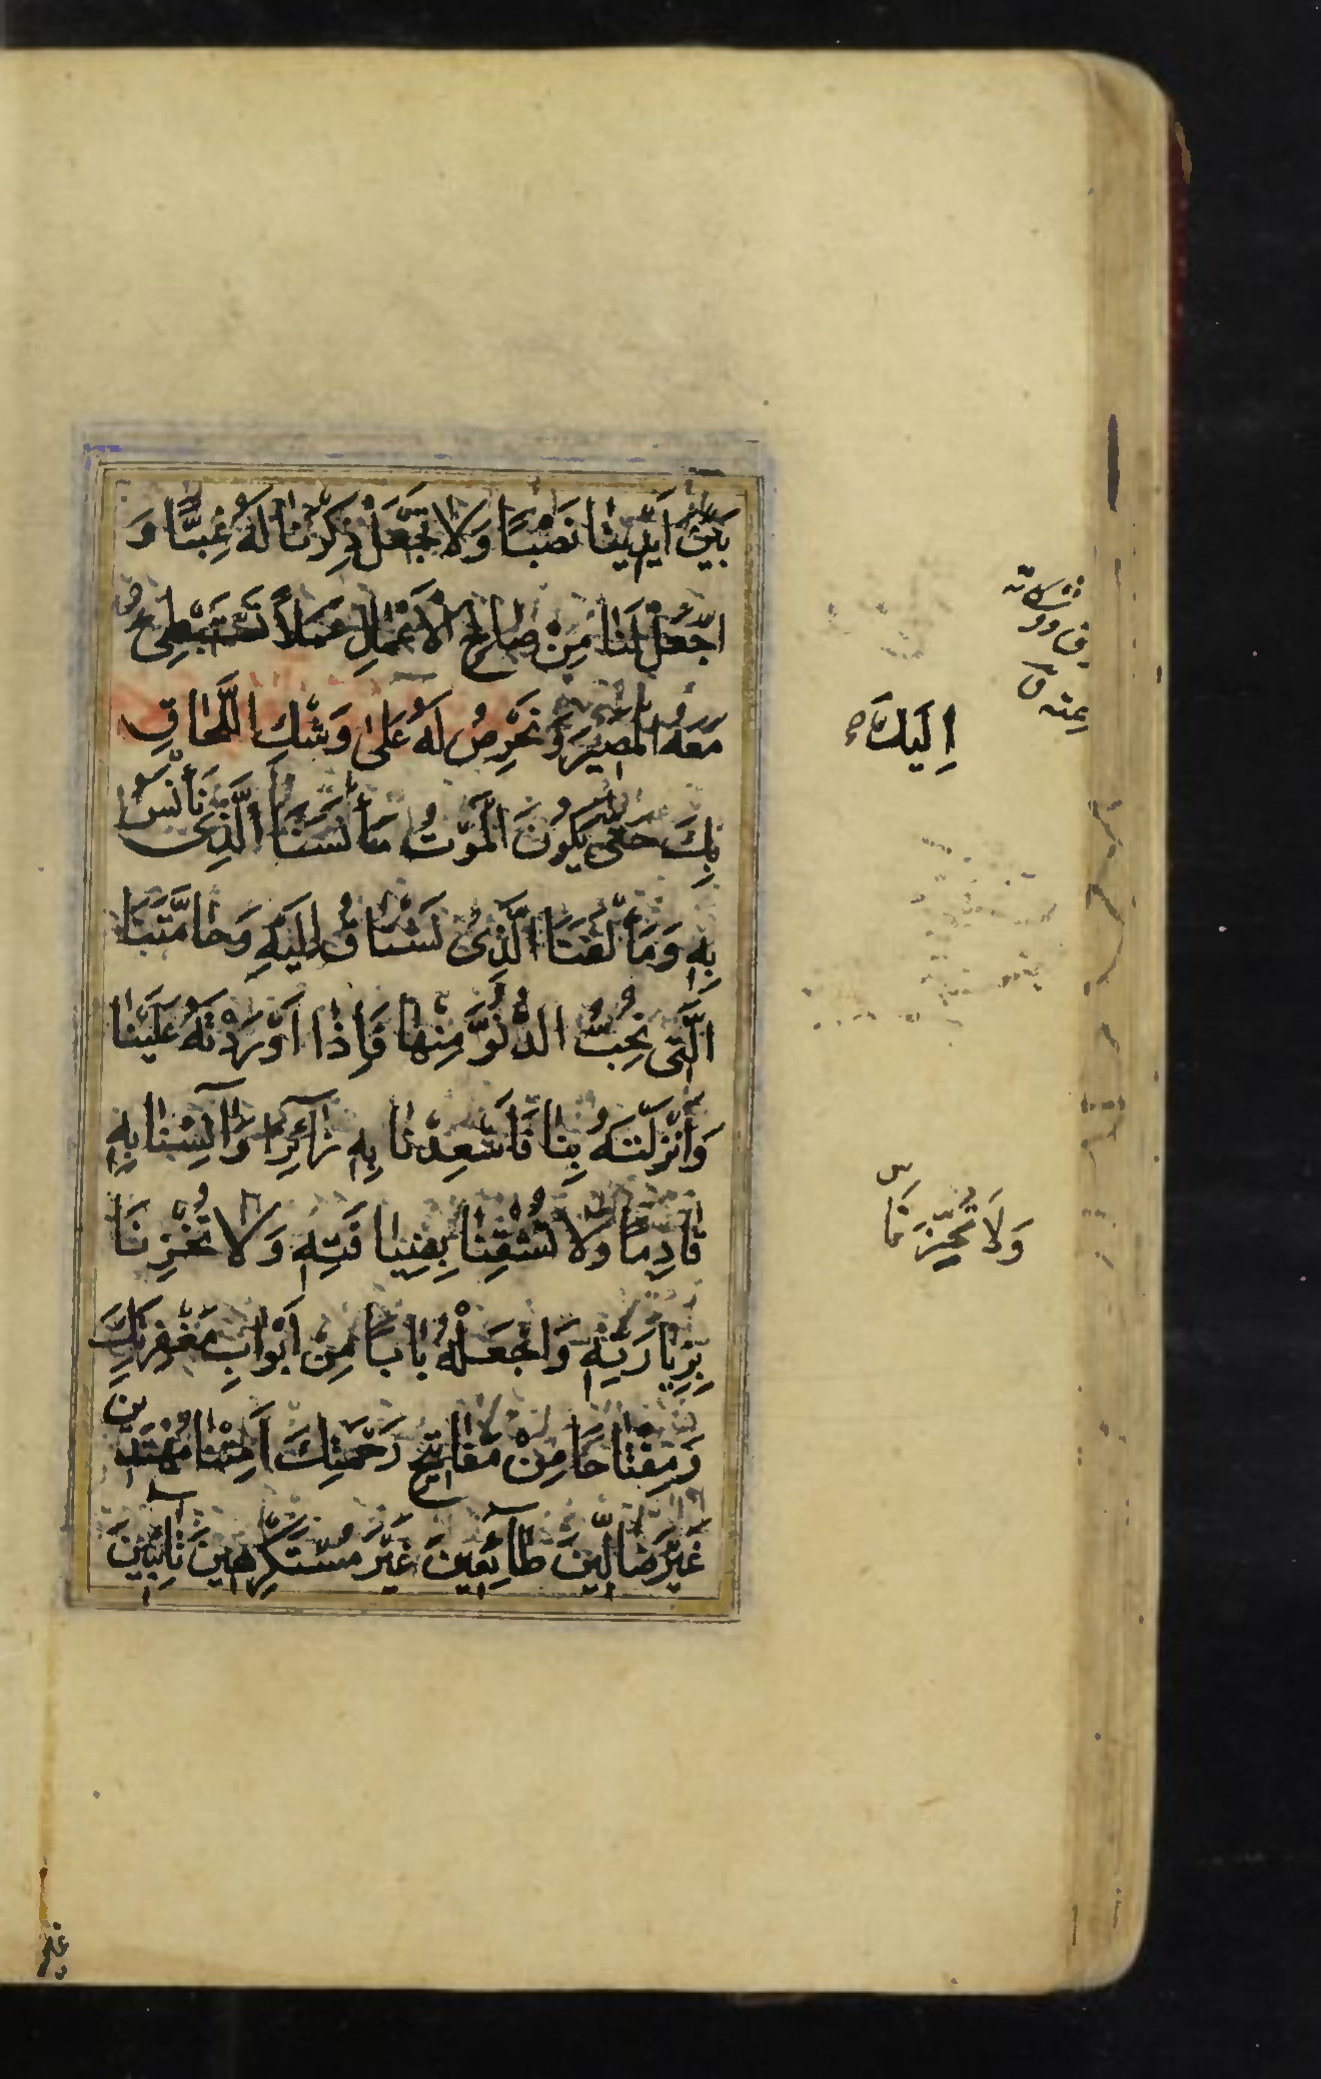 بَيْنَ اَيْدِينَا نَصْبًا وَلَا تَجْعَلْ ذِكْرَنَا لَهُ غِبًّا وَ
اجْعَلْ لَنَا مِنْ صَالِحِ الْاَعْمَالِ عَمَلًا نَسْتَبْطِئُ
مَعَهُ الْمَصِيرَ وَنَحْرِصُ لَهُ عَلٰى وَشْكِ اللَّحَاقِ
بِكَ حَتّٰى يَكُونَ الْمَوْتُ مَأْنَسَنَا الَّذِى نَأْنَسُ
بِهِ وَمَأْلَفَنَا الَّذِى نَشْتَاقُ اِلَيْهِ وَحَامَّتَنَا
الَّتِى نُحِبُّ الدُّنُوَّ مِنْهَا فَاِذَا اَوْرَدْتَهُ عَلَيْنَا
وَاَنْزَلْتَهُ بِنَا فَاَسْعِدْنَا بِهِ زَآئِرًا وَآنِسْنَا بِهِ
قَادِمًا وَلَا تُشْقِنَا بِضِيَافَتِهِ وَلَا تُخْزِنَا
بِزِيَارَتِهِ وَاجْعَلْهُ بَابًا مِنْ اَبْوَابِ مَغْفِرَتِكَ
وَمِفْتَاحًا مِنْ مَفَاتِيحِ رَحْمَتِكَ اَمِتْنَا مُهْتَدِينَ
غَيْرَ ضَالِّينَ طَآئِعِينَ غَيْرَ مُسْتَكْرِهِينَ تَآئِبِينَ
اِلَيْكَ